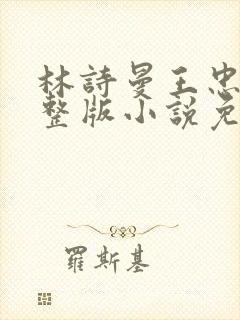 林詩曼王忠
整版小說免
羅斯基